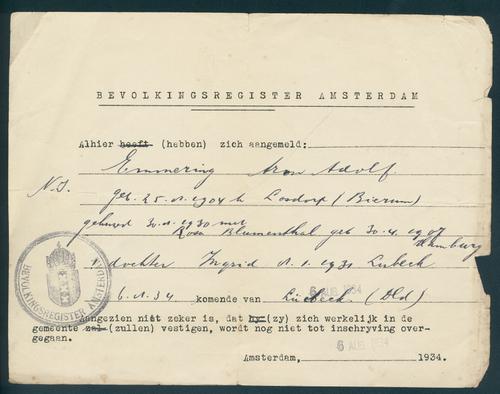 BEVOLKINGSREGISTER AMSTERDAM
Alhier heeft (hebben) zich aangemeld:
Emmering Aron Adolf.
N.I. geb. 25.8.1904 te Losdorp (Bierum)
gehuwd 30.8.1930 met
Rosa Blumenthal geb 30.4.1907
Hamburg
1 dochter Ingrid 8.1.1931 Lubeck
6 AUG 1934
6.8.34 komende van Lübeck. (Dld)
Aangezien niet zeker is, dat hy (zy) zich werkelijk in de
gemeente zal (zullen) vestigen, wordt nog niet tot inschryving over-
gegaan.
6 AUG 1934
Amsterdam, 1934.
BEVOLKINGSREGISTER AMSTERDAM